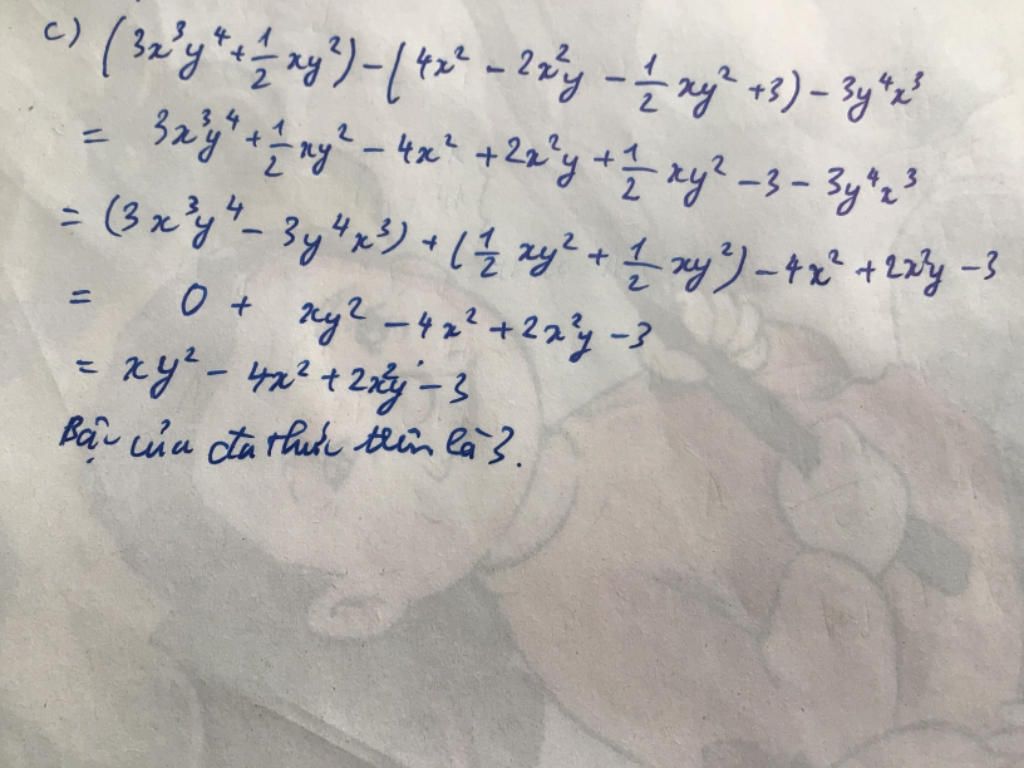 c) (3x³y⁴ + 1/2 xy²) - (4x² - 2x²y - 1/2 xy² + 3) - 3y⁴x³
= 3x³y⁴ + 1/2 xy² - 4x² + 2x²y + 1/2 xy² - 3 - 3y⁴x³
= (3x³y⁴ - 3y⁴x³) + (1/2 xy² + 1/2 xy²) - 4x² + 2x²y - 3
= 0 + xy² - 4x² + 2x²y - 3
= xy² - 4x² + 2x²y - 3
Bậc của đa thức trên là 3.